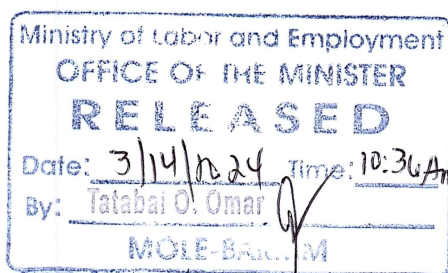 Ministry of Labor and Employment
OFFICE OF THE MINISTER
RELEASED
Date: 3/14/2024 Time: 10:36Am
By: Tatabai O. Omar
MOLE-BARMM